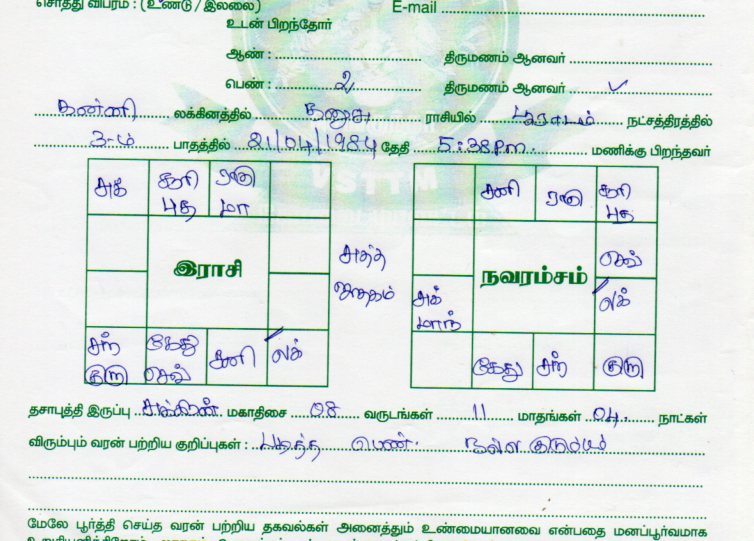 சொத்து விபரம் : (உண்டு / இல்லை) E-mail
உடன் பிறந்தோர்
ஆண் : திருமணம் ஆனவர்
பெண் : 2 திருமணம் ஆனவர் ✓
கன்னி லக்கினத்தில் தனுசு ராசியில் பூராடம் நட்சத்திரத்தில்
3-ம் பாதத்தில் 21/04/1984 தேதி 5:38pm மணிக்கு பிறந்தவர்
சுக் சூரி ராகு
புத மா
சனி ராகு சூரி
புத
VSTTM
இராசி
நவரம்சம்
செவ்
ஜாதகம்
சுக்
மாந்
லக்
சந் கேது சனி லக்
குரு செவ்
கேது சந் குரு
தசாபுத்தி இருப்பு சுக்கிரன் மகாதிசை 08 வருடங்கள் 11 மாதங்கள் 04 நாட்கள்
விரும்பும் வரன் பற்றிய குறிப்புகள் : படித்த பெண். நல்ல குடும்பம்
மேலே பூர்த்தி செய்த வரன் பற்றிய தகவல்கள் அனைத்தும் உண்மையானவை என்பதை மனப்பூர்வமாக